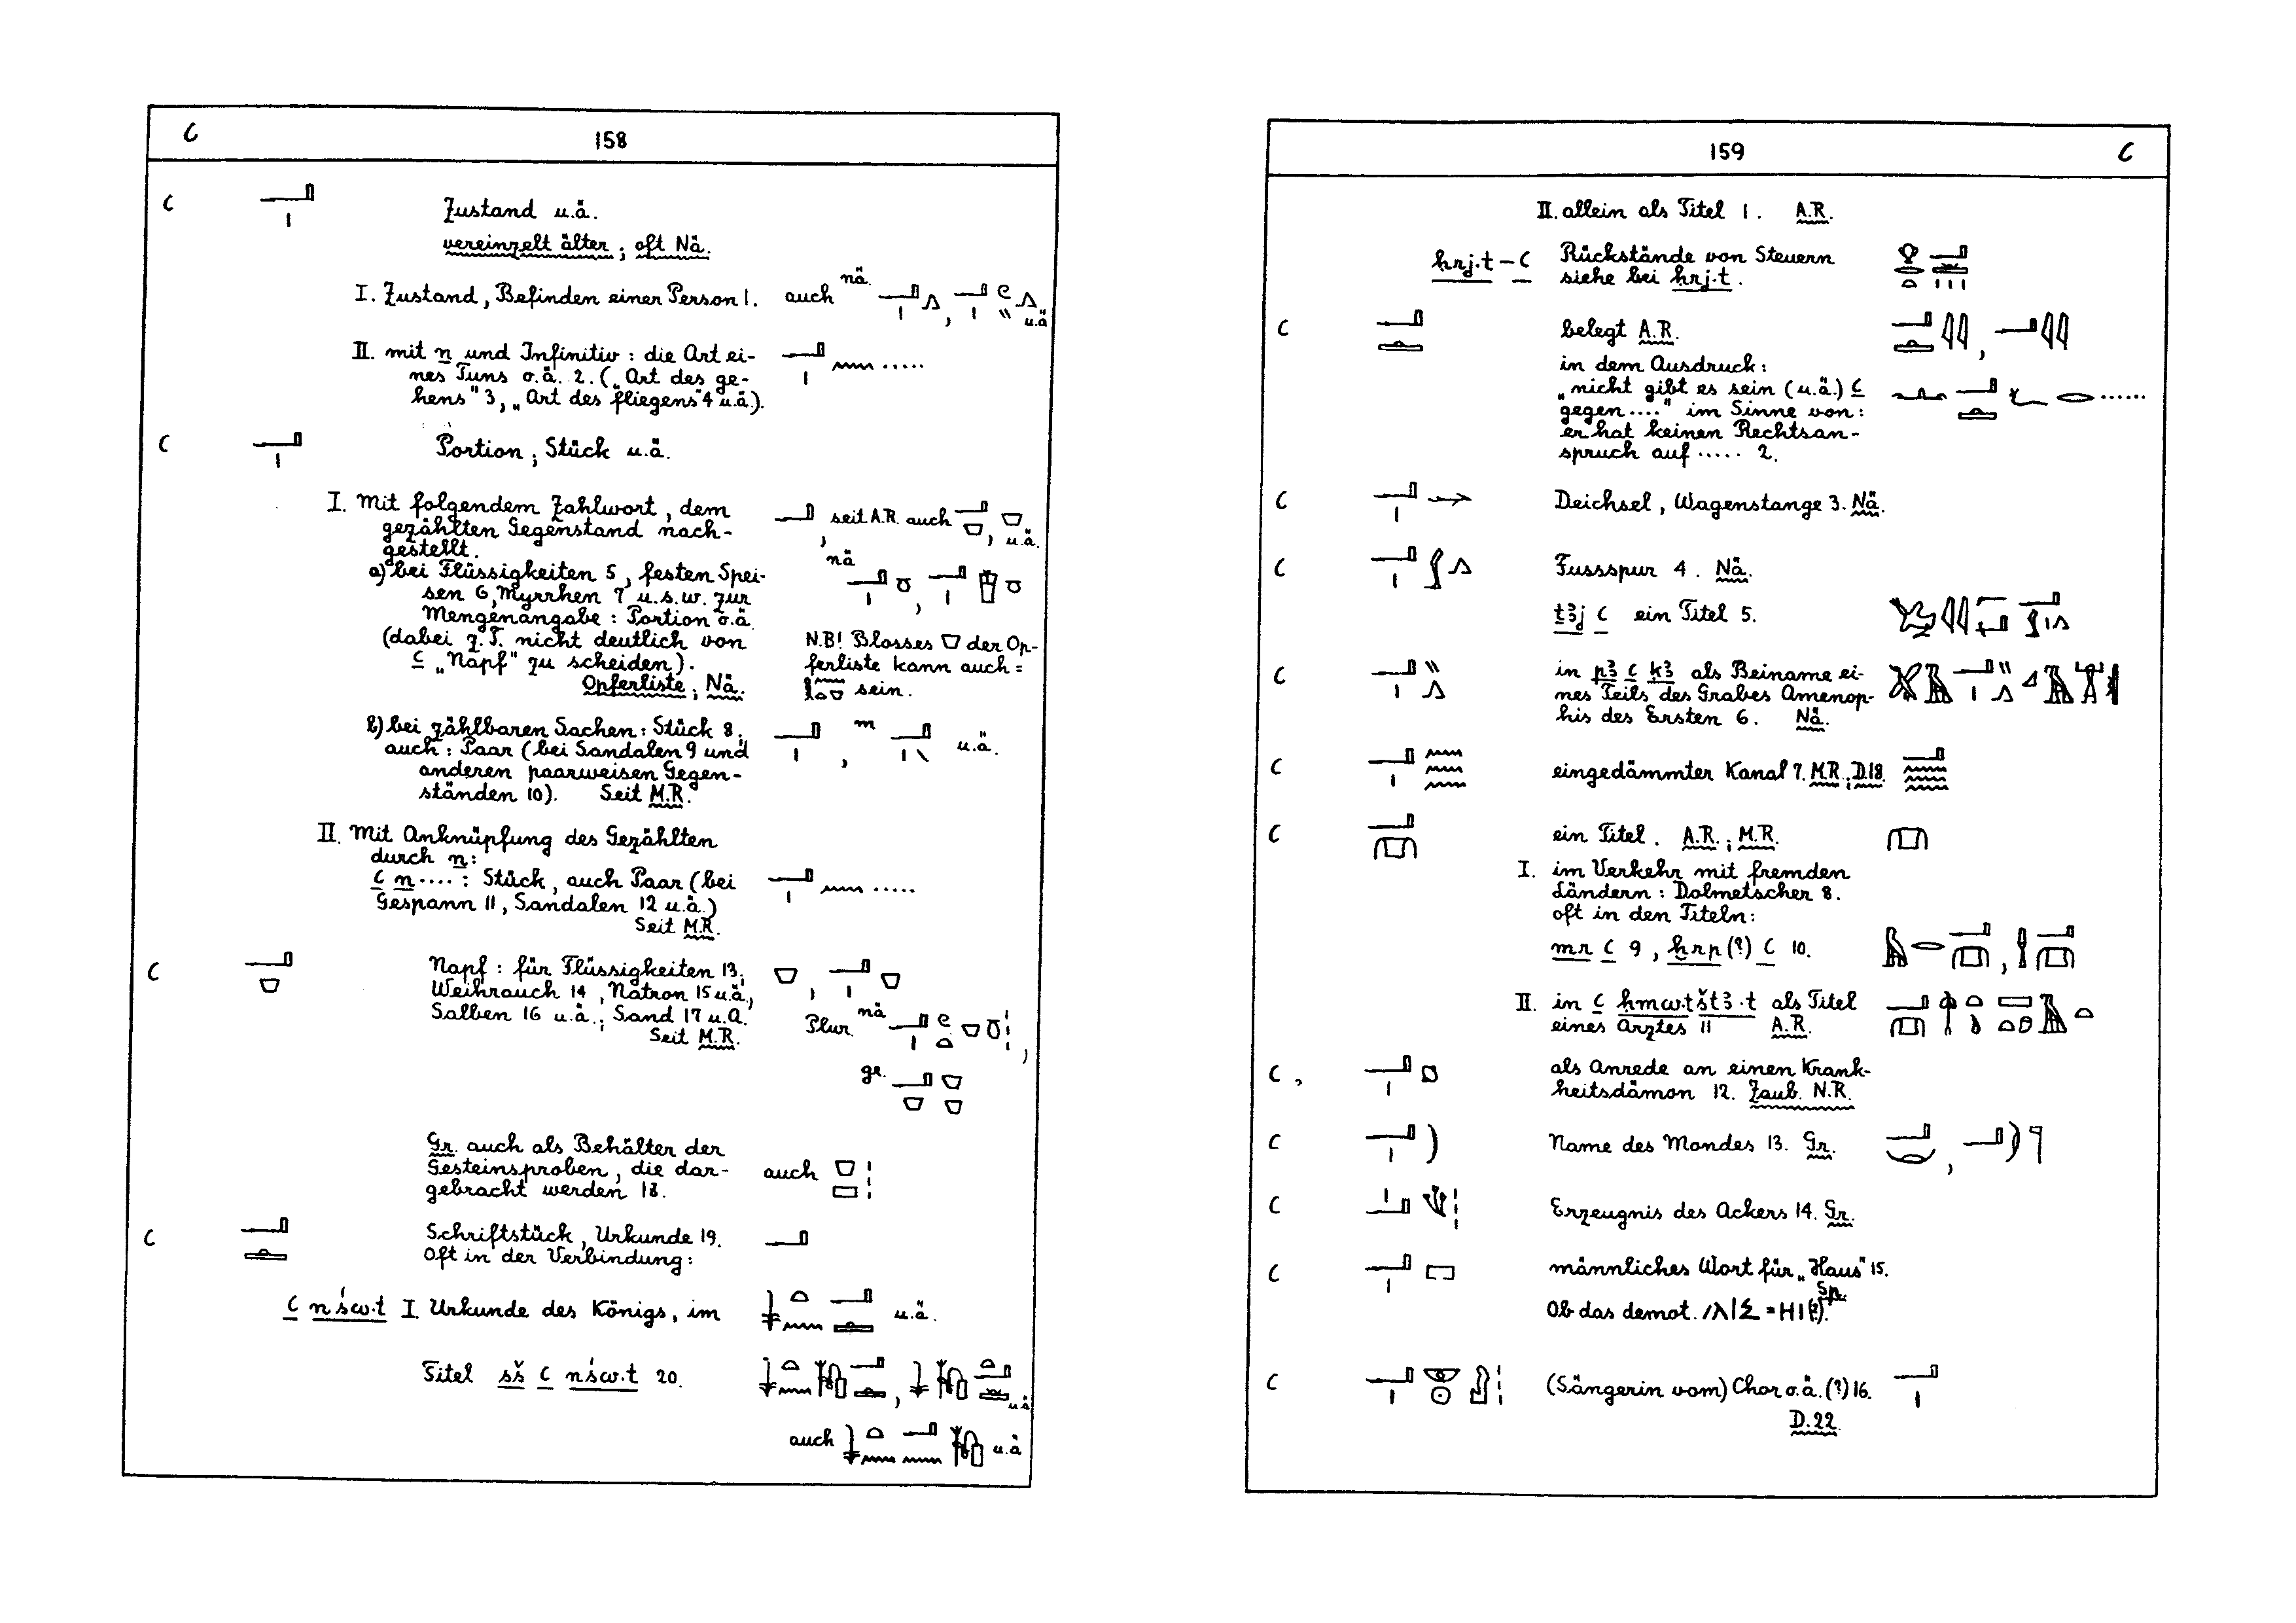 ꜥ 158
ꜥ 𓂝𓏤 Zustand u.ä.
vereinzelt älter; oft Nä.
I. Zustand, Befinden einer Person 1. auch nä. 𓂝𓏤𓂻, 𓂝𓏤𓏲𓏭𓂻 u.ä
II. mit n und Infinitiv: die Art ei- 𓂝𓏤𓈖.....
nes Tuns o.ä. 2. („Art des ge-
hens" 3, „Art des fliegens" 4 u.ä.).
ꜥ 𓂝𓏤 Portion; Stück u.ä.
I. Mit folgendem Zahlwort, dem 𓂝, seit A.R. auch 𓂝𓎺, 𓎺 u.ä.
gezählten Gegenstand nach-
gestellt.
a) bei Flüssigkeiten 5, festen Spei- nä
sen 6, Myrrhen 7 u.s.w. zur
Mengenangabe: Portion o.ä.
(dabei z.T. nicht deutlich von N.B! Blosses 𓎺 der Op-
ꜥ „Napf" zu scheiden). ferliste kann auch =
Opferliste; Nä. sein.
b) bei zählbaren Sachen: Stück 8, 𓂝𓏤, m 𓂝𓏤𓏯 u.ä.
auch: Paar (bei Sandalen 9 und
anderen paarweisen Gegen-
ständen 10). Seit M.R.
II. Mit Anknüpfung des Gezählten
durch n:
ꜥ n....: Stück, auch Paar (bei 𓂝𓏤𓈖.....
Gespann 11, Sandalen 12 u.ä.)
Seit M.R.
ꜥ 𓂝𓎺 Napf: für Flüssigkeiten 13, 𓎺, 𓂝𓏤𓎺
Weihrauch 14, Natron 15 u.ä.,
Salben 16 u.ä.; Sand 17 u.a. Plur. nä
Seit M.R.
gr. 𓂝𓎺𓎺𓎺
Gr. auch als Behälter der
Gesteinsproben, die dar- auch 𓎺𓈇𓏥
gebracht werden 18.
ꜥ 𓂝𓏛 Schriftstück, Urkunde 19. 𓂝
Oft in der Verbindung:
ꜥ nśw.t I. Urkunde des Königs, im 𓇓𓏏𓈖𓂝𓏛 u.ä.
Titel sš ꜥ nśw.t 20. 𓇓𓏏𓈖𓏞𓂝𓏛, 𓇓𓏞𓏏𓂝𓏛 u.ä
auch 𓇓𓏏𓈖𓂝𓈖𓏞 u.ä
159 ꜥ
II. allein als Titel 1. A.R.
ẖrj.t-ꜥ Rückstände von Steuern
siehe bei ẖrj.t.
ꜥ 𓂝𓏛 belegt A.R. 𓂝𓏛𓇋𓇋, 𓂝𓇋𓇋
in dem Ausdruck:
„nicht gibt es sein (u.ä.) ꜥ 𓂜𓂝𓏛𓆑𓂋......
gegen ...." im Sinne von:
er hat keinen Rechtsan-
spruch auf ..... 2.
ꜥ 𓂝𓏤 Deichsel, Wagenstange 3. Nä.
ꜥ 𓂝𓏤𓂾𓂻 Fussspur 4. Nä.
tꜣj ꜥ ein Titel 5.
ꜥ 𓂝𓏤𓏭𓂻 in pꜣ ꜥ kꜣ als Beiname ei-
nes Teils des Grabes Amenop-
his des Ersten 6. Nä.
ꜥ 𓂝𓏤𓈗 eingedämmter Kanal 7. M.R.; D.18. 𓂝𓈗
ꜥ ein Titel. A.R.; M.R.
I. im Verkehr mit fremden
Ländern: Dolmetscher 8.
oft in den Titeln:
mr ꜥ 9, ḫrp (?) ꜥ 10.
II. in ꜥ ḥmw.t štꜣ.t als Titel
eines Arztes 11 A.R.
ꜥ, als Anrede an einen Krank-
heitsdämon 12. Zaub. N.R.
ꜥ Name des Mondes 13. Gr.
ꜥ Erzeugnis des Ackers 14. Gr.
ꜥ 𓂝𓏤𓉐 männliches Wort für „Haus" 15. Sp.
Ob das demot. = HI (?).
ꜥ (Sängerin vom) Chor o.ä. (?) 16. 𓂝𓏤
D.22.